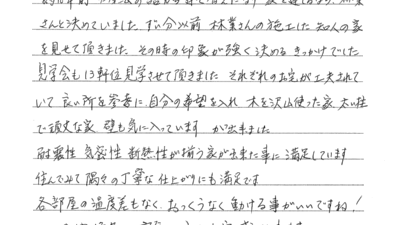 さんと決めていました。ずい分以前 林業さんの施工した知人の家
を見せて頂きました その時の印象が強く決める きっかけでした
見学会も13軒位見学させて頂きました それぞれのお宅が工夫されて
いて 良い所を参考に、自分の希望を入れ 木を沢山使った家 太い柱
で頑丈な家 壁も気に入っています が出来ました
耐震性 気密性 断熱性が揃う家が出来た事に 満足しています
住んでみて 隅々の丁寧な仕上がりにも満足です
各部屋の温度差もなく、おっくうなく動ける事がいいですね!